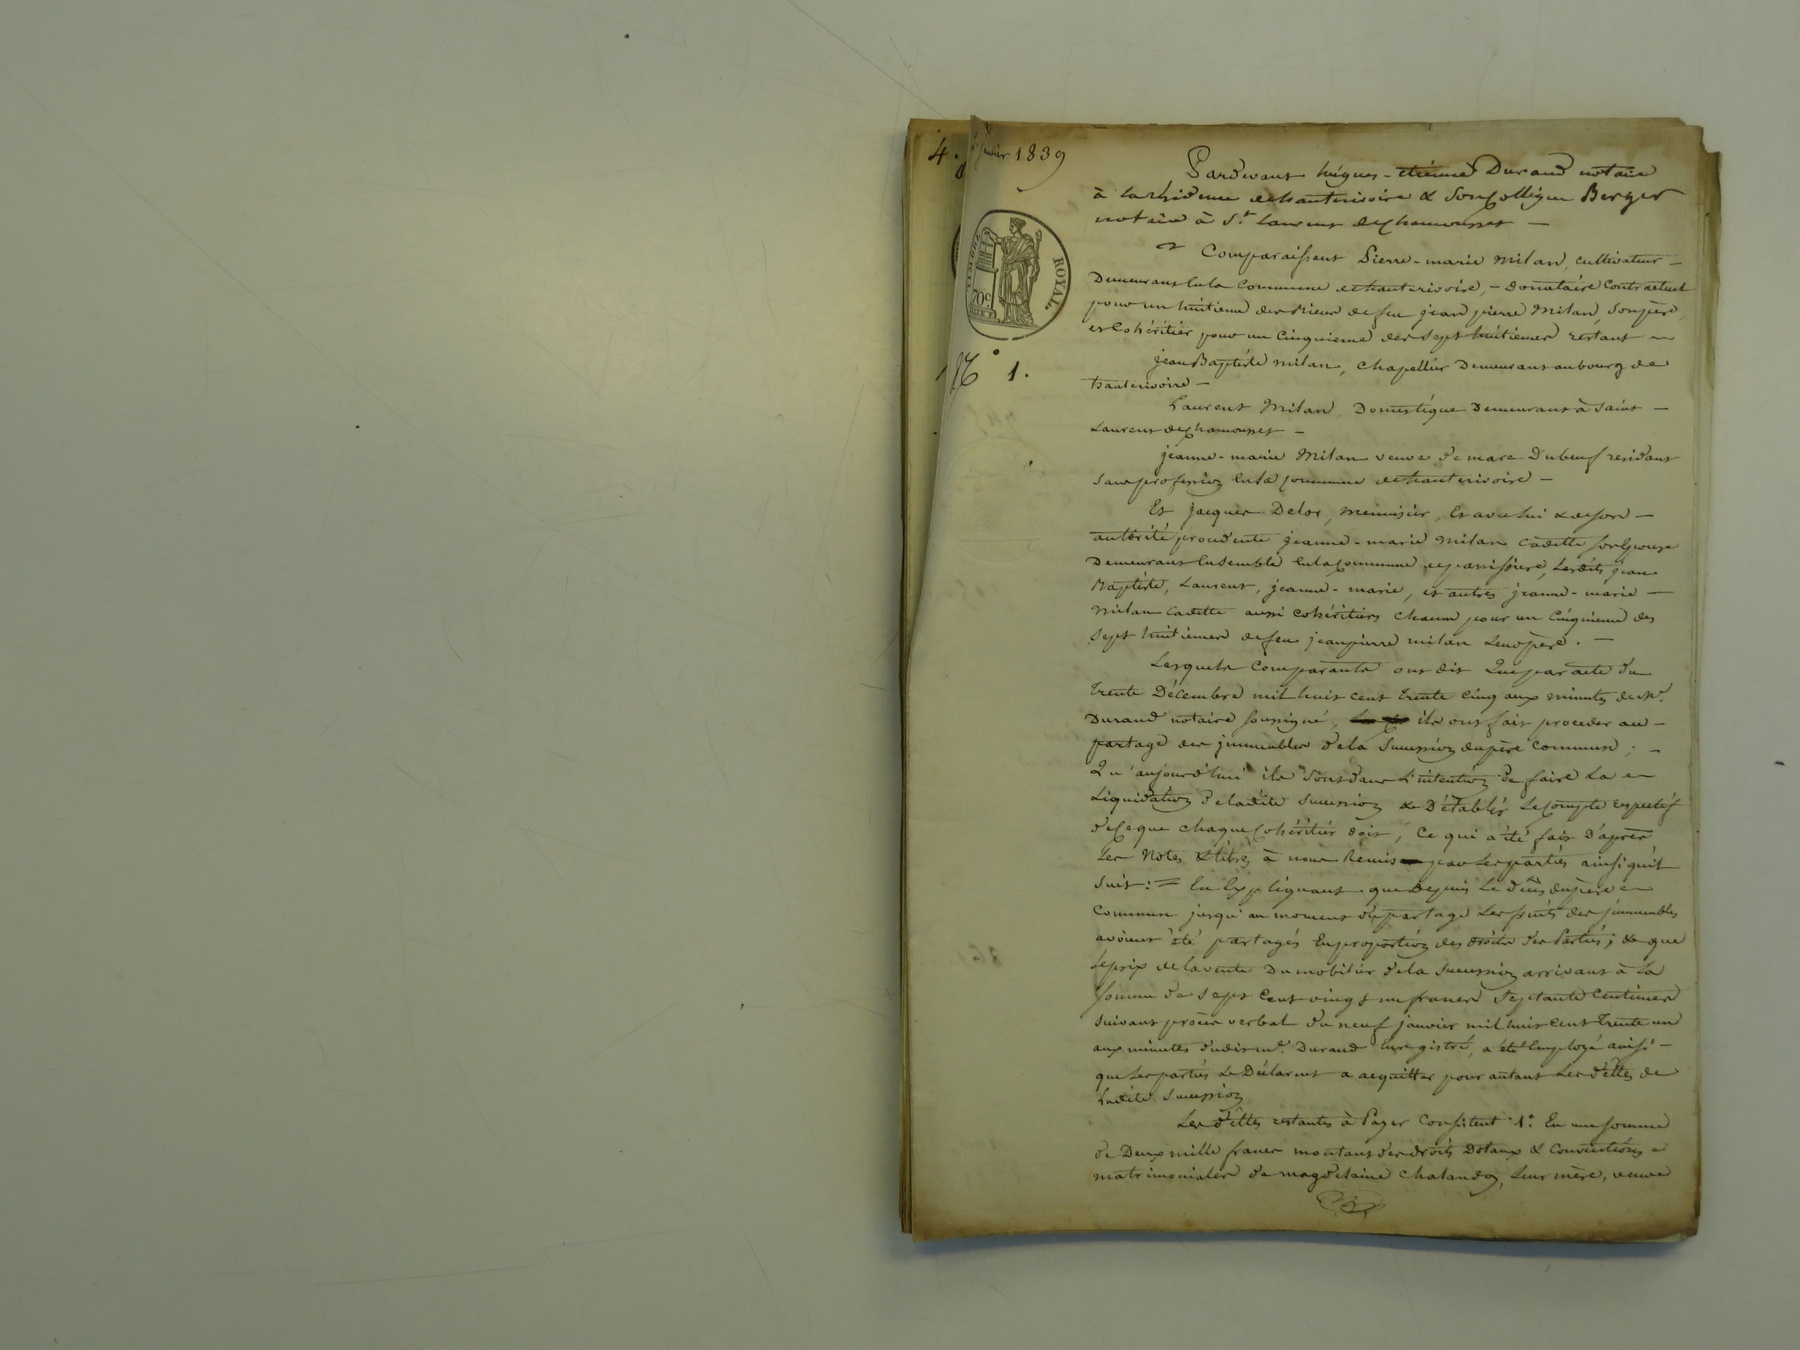 4. janvier 1839
TIMBRE ROYAL
70c.
N° 1.
Pardevant hugues-étienne Durand notaire
à la résidence de hauterivoire & son collègue Berger
notaire à St. Laurent de chamousset —
Comparaissent Pierre-marie Milan, cultivateur —
Demeurant en la Commune de hauterivoire, — donataire contractuel
pour un huitième des biens de feu jean pierre Milan, son père,
et Cohéritier pour un Cinquieme des sept huitiemes restant
jean Baptiste Milan, Chapellier Demeurant au bourg de
hauterivoire —
Laurent Milan, Domestique Demeurant à Saint —
Laurent de chamousset —
jeanne-marie Milan veuve de marc Dubeuf residant
sans profession en la Commune de hauterivoire —
Et jacques Delor, Menuisier, Et avec lui & de son —
autorité procedente jeanne-marie Milan cadette son Epouse
Demeurant Ensemble en la Commune de panissière, Lesdits jean
Baptiste, Laurent, jeanne-marie, et autres jeanne-marie —
Milan cadette aussi cohéritiers chacun pour un Cinquieme des
sept huitiemes de feu jean pierre milan leur père. —
Lesquels Comparants ont dit Que par acte du
Trente Décembre mil huit cent trente cinq aux minutes de Me.
Durand notaire soussigné, ils ont fait proceder au —
partage des immeubles de la Succession du père commun; —
Qu'aujourd'hui ils sont dans l'intention de faire La
Liquidation de ladite succession & D'établir Le Compte respectif
de Ce que chaque Cohéritier doit, Ce qui a été fait D'après
Les Notes & titres à nous Remis par Les parties ainsi qu'il
suit: = En Expliquant que Depuis Le décès du père
Commun jusqu'au moment du partage Les fruits des immeubles
avoient été partagés En proportion des droits des Parties; & que
Le prix de la vente Du mobilier de la Succession arrivant à La
somme de sept Cent vingt un francs septante Centimes
suivant procès verbal du neuf janvier mil huit Cent Trente un
aux minutes dudit me. Durand Enregistré, a été Employé ainsi —
que Les parties Le Déclarent a acquitter pour autant Les dettes de
Ladite Succession
Les dettes restantes à Payer Consistent 1°. En une somme
de Deux mille francs montant des droits Dotaux & Conventions
matrimoniales de magdelaine Chalandon, Leur mère, veuve